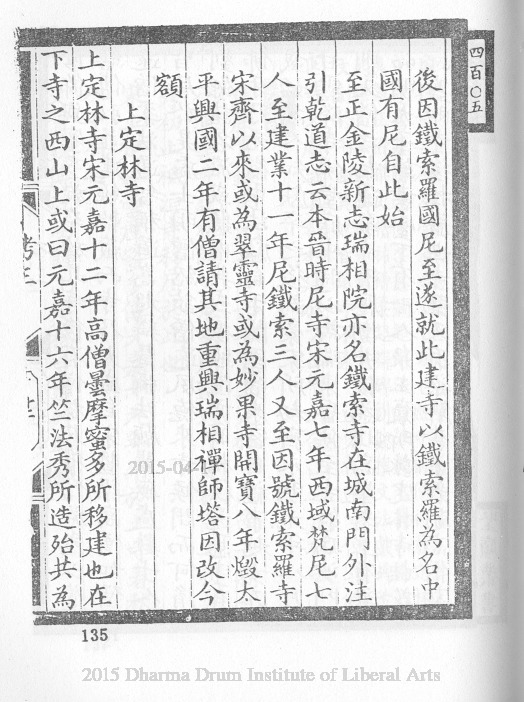 四百〇五
後因鐵索羅國尼至遂就此建寺以鐵索羅為名中
國有尼自此始
至正金陵新志瑞相院亦名鐵索寺在城南門外注
引乾道志云本晉時尼寺宋元嘉七年西域梵尼七
人至建業十一年尼鐵索三人又至因號鐵索羅寺
宋齊以來或為翠靈寺或為妙果寺開寶八年燬太
平興國二年有僧請其地重興瑞相禪師塔因改今
額
上定林寺
上定林寺宋元嘉十二年高僧曇摩蜜多所移建也在
下寺之西山上或曰元嘉十六年竺法秀所造殆共為
135
2015-04
2015 Dharma Drum Institute of Liberal Arts